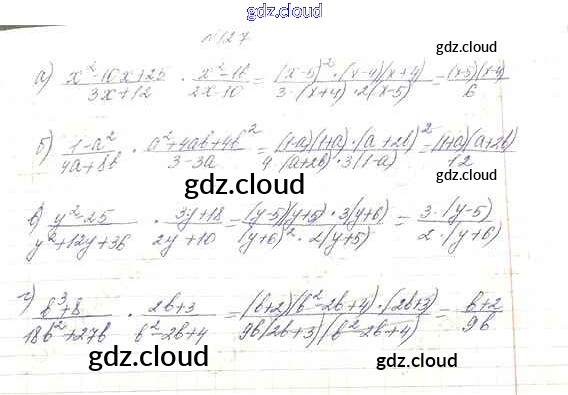 gdz.cloud
№127
gdz.cloud
а) (x²-10x+25)/(3x+12) · (x²-16)/(2x-10) = ((x-5)²·(x-4)(x+4))/(3·(x+4)·2(x-5)) = ((x-5)(x-4))/6
gdz.cloud
б) (1-a²)/(4a+8b) · (a²+4ab+4b²)/(3-3a) = ((1-a)(1+a)·(a+2b)²)/(4(a+2b)·3(1-a)) = ((1+a)(a+2b))/12
gdz.cloud
gdz.cloud
в) (y²-25)/(y²+12y+36) · (3y+18)/(2y+10) = ((y-5)(y+5)·3(y+6))/((y+6)²·2(y+5)) = (3·(y-5))/(2·(y+6))
gdz.cloud
г) (b³+8)/(18b²+27b) · (2b+3)/(b²-2b+4) = ((b+2)(b²-2b+4)·(2b+3))/(9b(2b+3)(b²-2b+4)) = (b+2)/(9b)
gdz.cloud
gdz.cloud